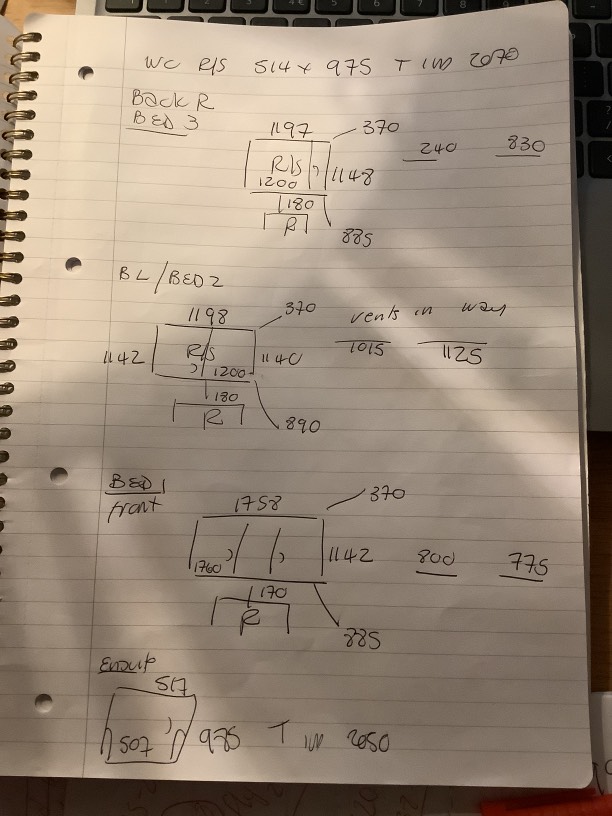 WC R/S 514 x 975 T IN 2070
Back R
BED 3
1197 370
240 830
R/S 1148
1200
180
R 885
BL/BED 2
1198 370 vents in way
1142 R/S 1140 1015 1125
1200
180
R 890
BED 1
front 1758 370
1142 800 775
1760
170
R 885
517
507 975 T IN 2050